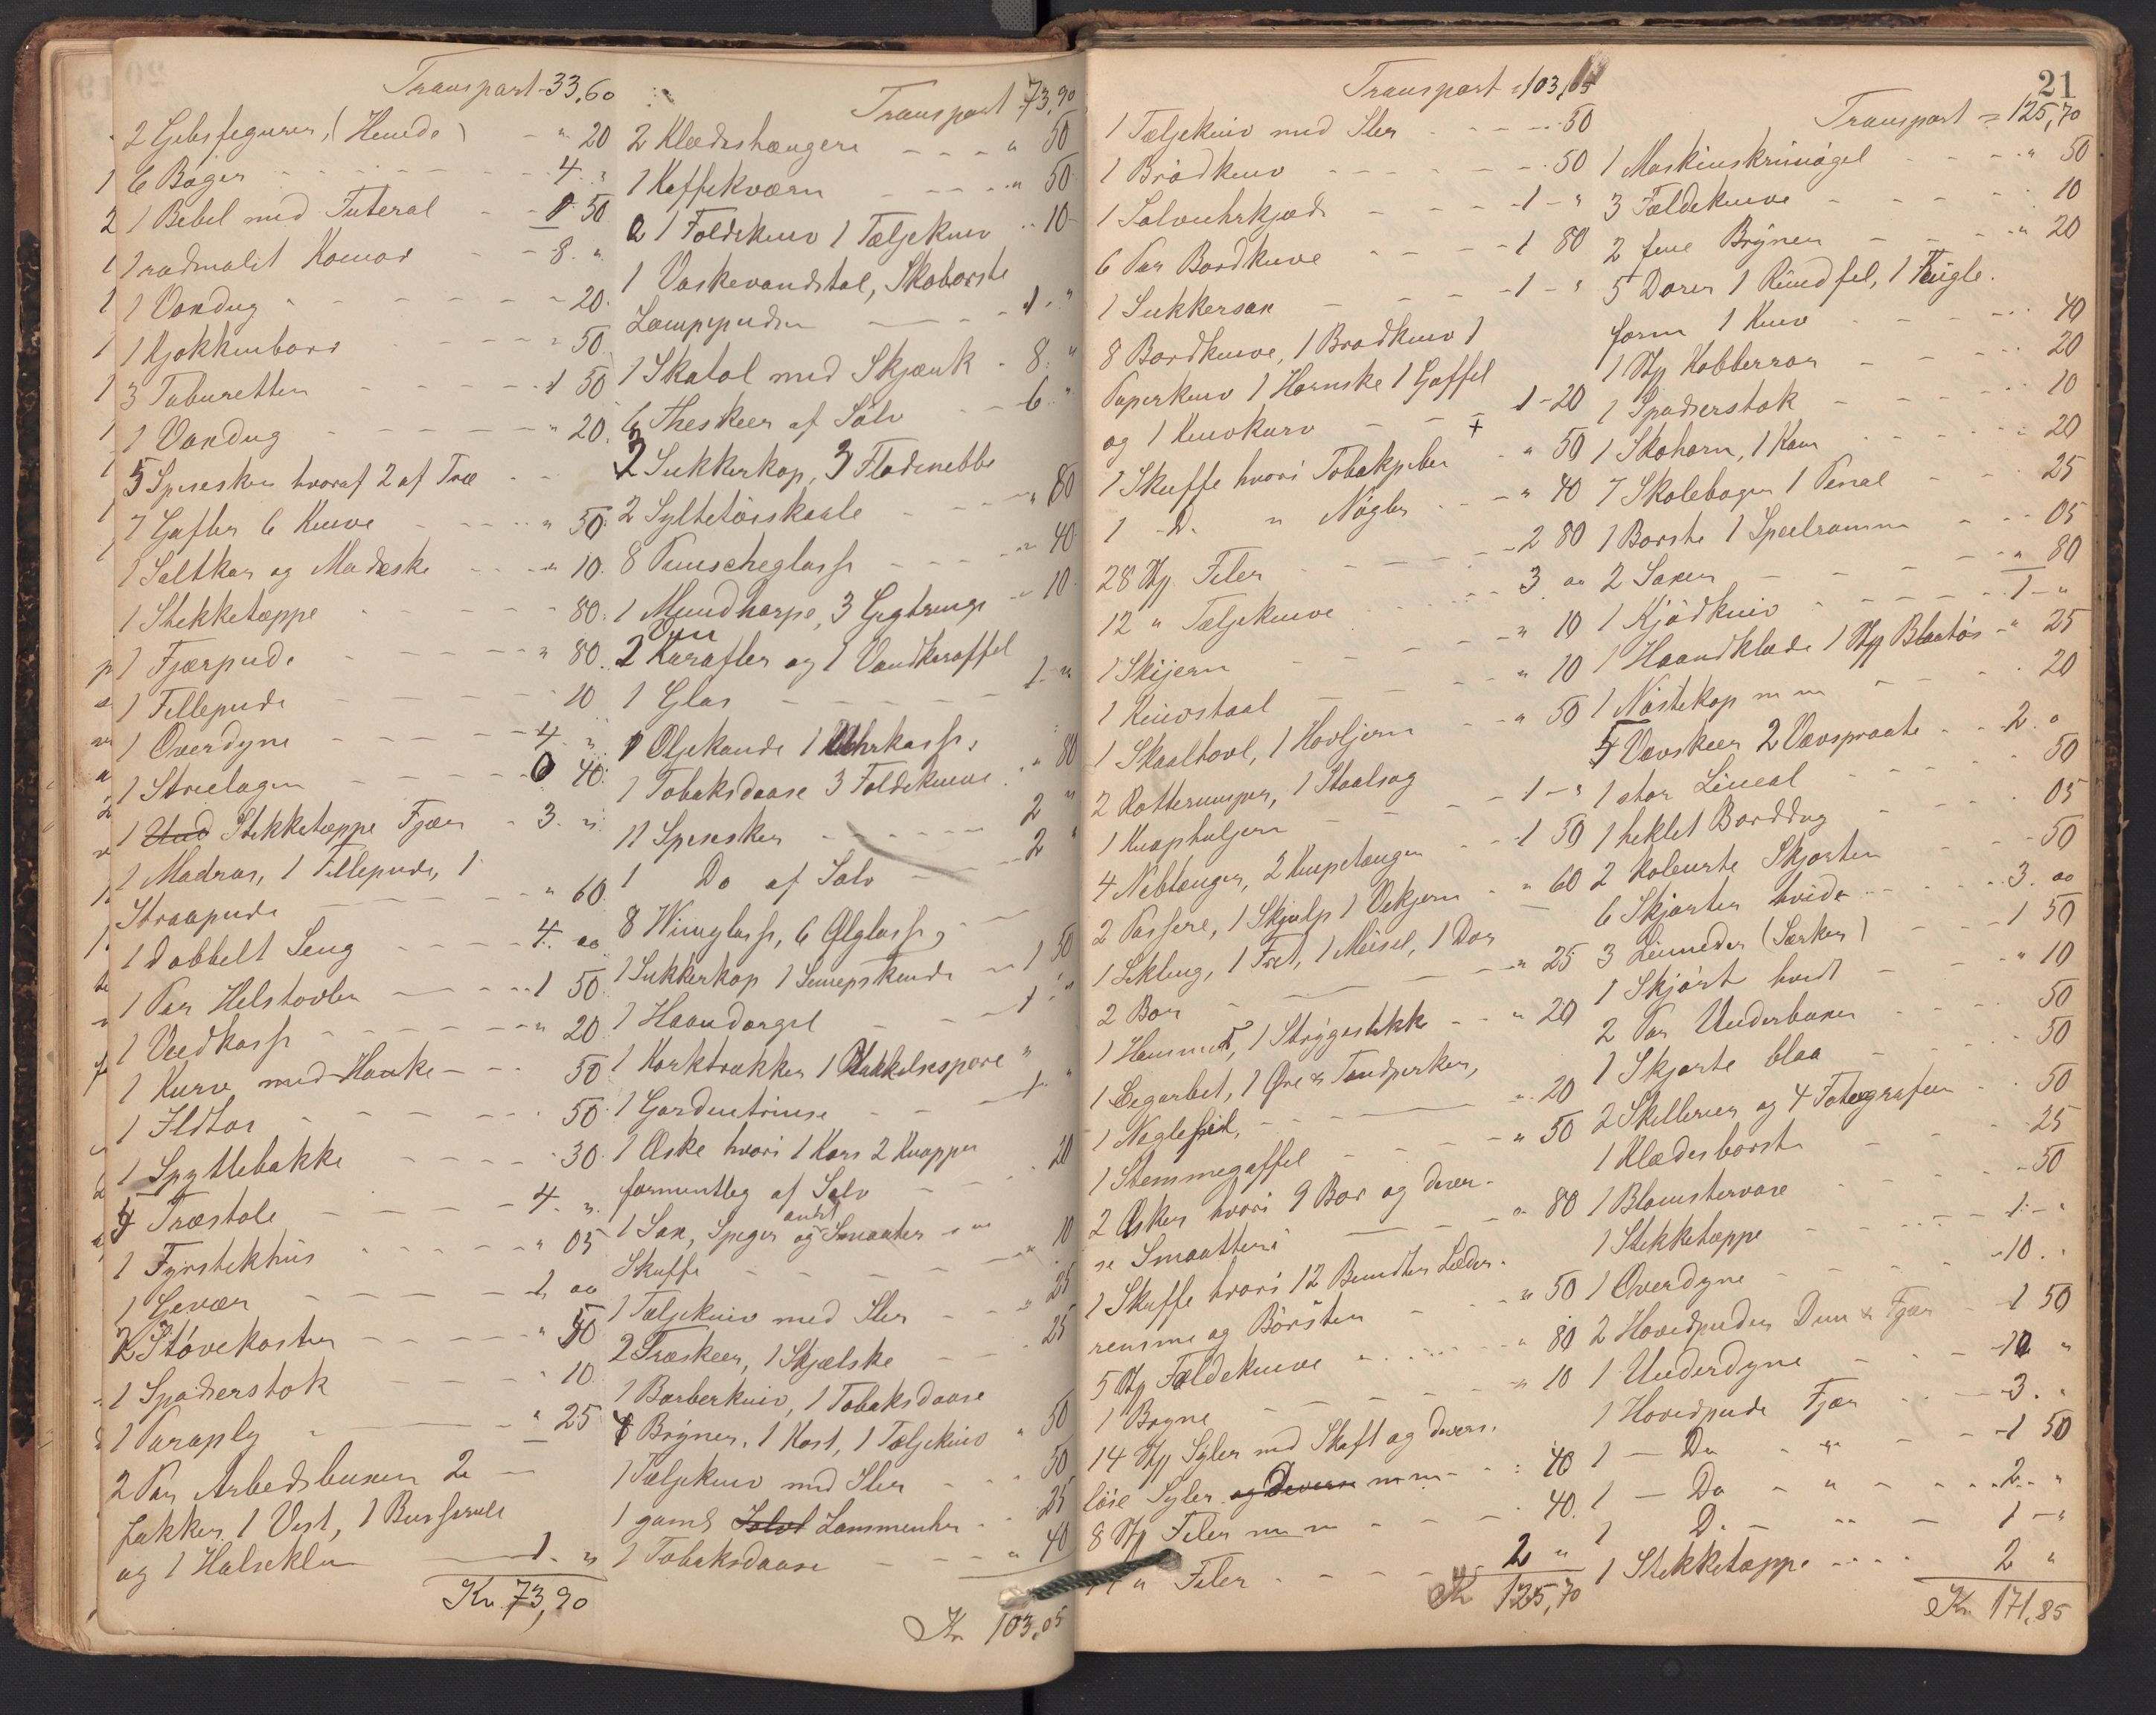 Transport 33,60
2 Gibsfigurer, (Hunde) " 20
6 Bøger 4 "
1 Bibel med Futeral 1 50
1 rødmalit Komod 8. "
1 Voxdug 20.
1 Kjøkkenbord 50
3 Taburetter 1 50
1 Voxdug " 20.
5 Speseskeer hvoraf 2 af Træ
7 Gafler 6 Knive " 50.
1 Saltkar og Madeske " 10.
1 Stikketæppe 80.
1 Fjærpude " 80.
1 Fillepude 10
1 Overdyne 4. "
1 Strielagen 40.
1 Stikketæppe Fjær 3. "
1 Madras, 1 Fillepude, 1
Straapude " 60.
1 dobbelt Seng 4. oo
1 Par Helstøvler 1 50.
1 Vedkasse " 20
1 Kurv med Hanke 50
1 Ildtor 50.
1 Spyttebakke 30.
4 Træstole 4. "
1 Fyrstikhus " 05
1 Gevær 1, oo
2 Støvekoster " 50
1 Spadserstok 10
1 Paraply " 25
2 Par Arbeidsbuxer 2
Jakker 1 Vest, 1 Busserull
og 1 Halseklu 1. "
Kr. 73,90
Transport 73,90
2 Klædeshængere " 50
1 Kaffekværn " 50
1 Foldekniv 1 Tæljekniv 10
1 Vaskevandstol, Skobørste
Lampepuder 1 "
1 Skatol med Skjænk 8. "
6 Theskeer af Sølv 6 "
2 Sukkerkop, 3 Flødenebbe
2 Syltetøiskaale " 80
8 Punscheglass " 40
1 Mundharpe, 3 Gigtringe " 10
2 Karafler og 1 Vandkaraffel
1 Glas 1 "
1 Oljekande 1 Uhrkasse,
1 Tobaksdaase 3 Foldeknive " 80
11 Speseskeer 2 "
1 Do af Sølv 2 "
8 Vinglass, 6 Ølglass,
1 Sukkerkop 1 Senepskande 1 50
1 Haandorgel 1 "
1 Korktrækker 1 Hakkelsespore "
1 Gardentrinse 1 "
1 Æske hvori 1 Kors 2 Knapper
formentlig af Sølv 20
1 Sax, Speger og andet Smaateri i en
Skuffe 10
1 Tæljekniv med Slir " 25
2 Træskeer, 1 Skjælske 25
1 Barberkniv, 1 Tobaksdaase
4 Brÿner, 1 Kost, 1 Tæljekniv " 50
1 Tæljekniv med Slir 50
1 gamel Sølvl Lommeuhr 25
1 Tobaksdaase " 40
Kr 103.05
21
Transport = 103,05
1 Tæljekniv med Slir 50
1 Brødkniv 50
1 Sølvuhrkjæde 1 "
6 Par Bordknive 1 80
1 Sukkersax 1 "
8 Bordknive, 1 Brødkniv 1
Papirkniv 1 Hornske 1 Gaffel
og 1 Knivkurv 1 20
1 Skuffe hvori Tobakpiber " 50
1 D. " Nøgler " 40
28 St. Filer 2 80
12 " Tæljeknive 3. oo
1 Skijern " 10
1 Knivstaal " 10
1 Skaalhøvl, 1 Høvljern " 50
2 Rotterumper, 1 Staalsag
1 Knaphuljern 1 "
4 Nebtænger, 2 Knipetænger 1 50
2 Passere, 1 Skjælp 1 Vekjern " 60
1 Sekling, 1 Fret, 1 Meisel, 1 Dor
2 Bor " 25
1 Hammer, 1 Strÿgestikk " 20
1 Øre & Tandpirker,
1 Neglefiil, " 20
1 Stemmegaffel " 50
2 Æsker hvori 9 Bor og diver-
se Smaatteri " 80
1 Skuffe hvori 12 Bundter Læder-
remme og Børster " 50
5 St. Foldeknive " 80
1 Bryne " 10
14 St. Syler med Skaft og divers.
løse Syler og Diverse m m 40
8 St. Filer m m 40.
" Filer 2 "
Kr 125,70
Transport = 125,70
1 Maskinskrunøgel " 50
3 Foldeknive 10
2 fine Brÿner " 20
5 Dorer 1 Rundfil, 1 Kugle-
form 1 Kniv 40
1 St. Kobberrør 20
1 Spadserstok 10
1 Skohorn, 1 Kam 20
7 Skolebøger 1 Penal 25
1 Børste 1 Speilramme 05
2 Saxer " 80
1 Kjødkniv 1 "
1 Haandklæde 1 St. Blaatøi " 25
1 Nøstekop m m 20
4 Vævskeer 2 Vævspraate 2. "
1 stor Lineal 50
1 heklet Borddug 05
2 kolerte Skjorter 50
6 Skjorter hvide 3. oo
3 Linneder (Særker) 1 50
1 Skjørt hvidt " 10
2 Par Underbuxer 50
1 Skjorte blaa 50
2 Skillerier og 4 Fotografier 50
1 Klædesbørste 25
1 Blomstervase 50
1 Stikketæppe 1 "
1 Overdyne 10. "
2 Hovedpuder Dun & Fjær 1 50
1 Underdyne 10 "
1 Hovedpude Fjær 3. "
1 — Do " 1 50
1 — Do " 2. "
1 D. " 1 "
1 Stikketæppe 2 "
Kr. 171,85